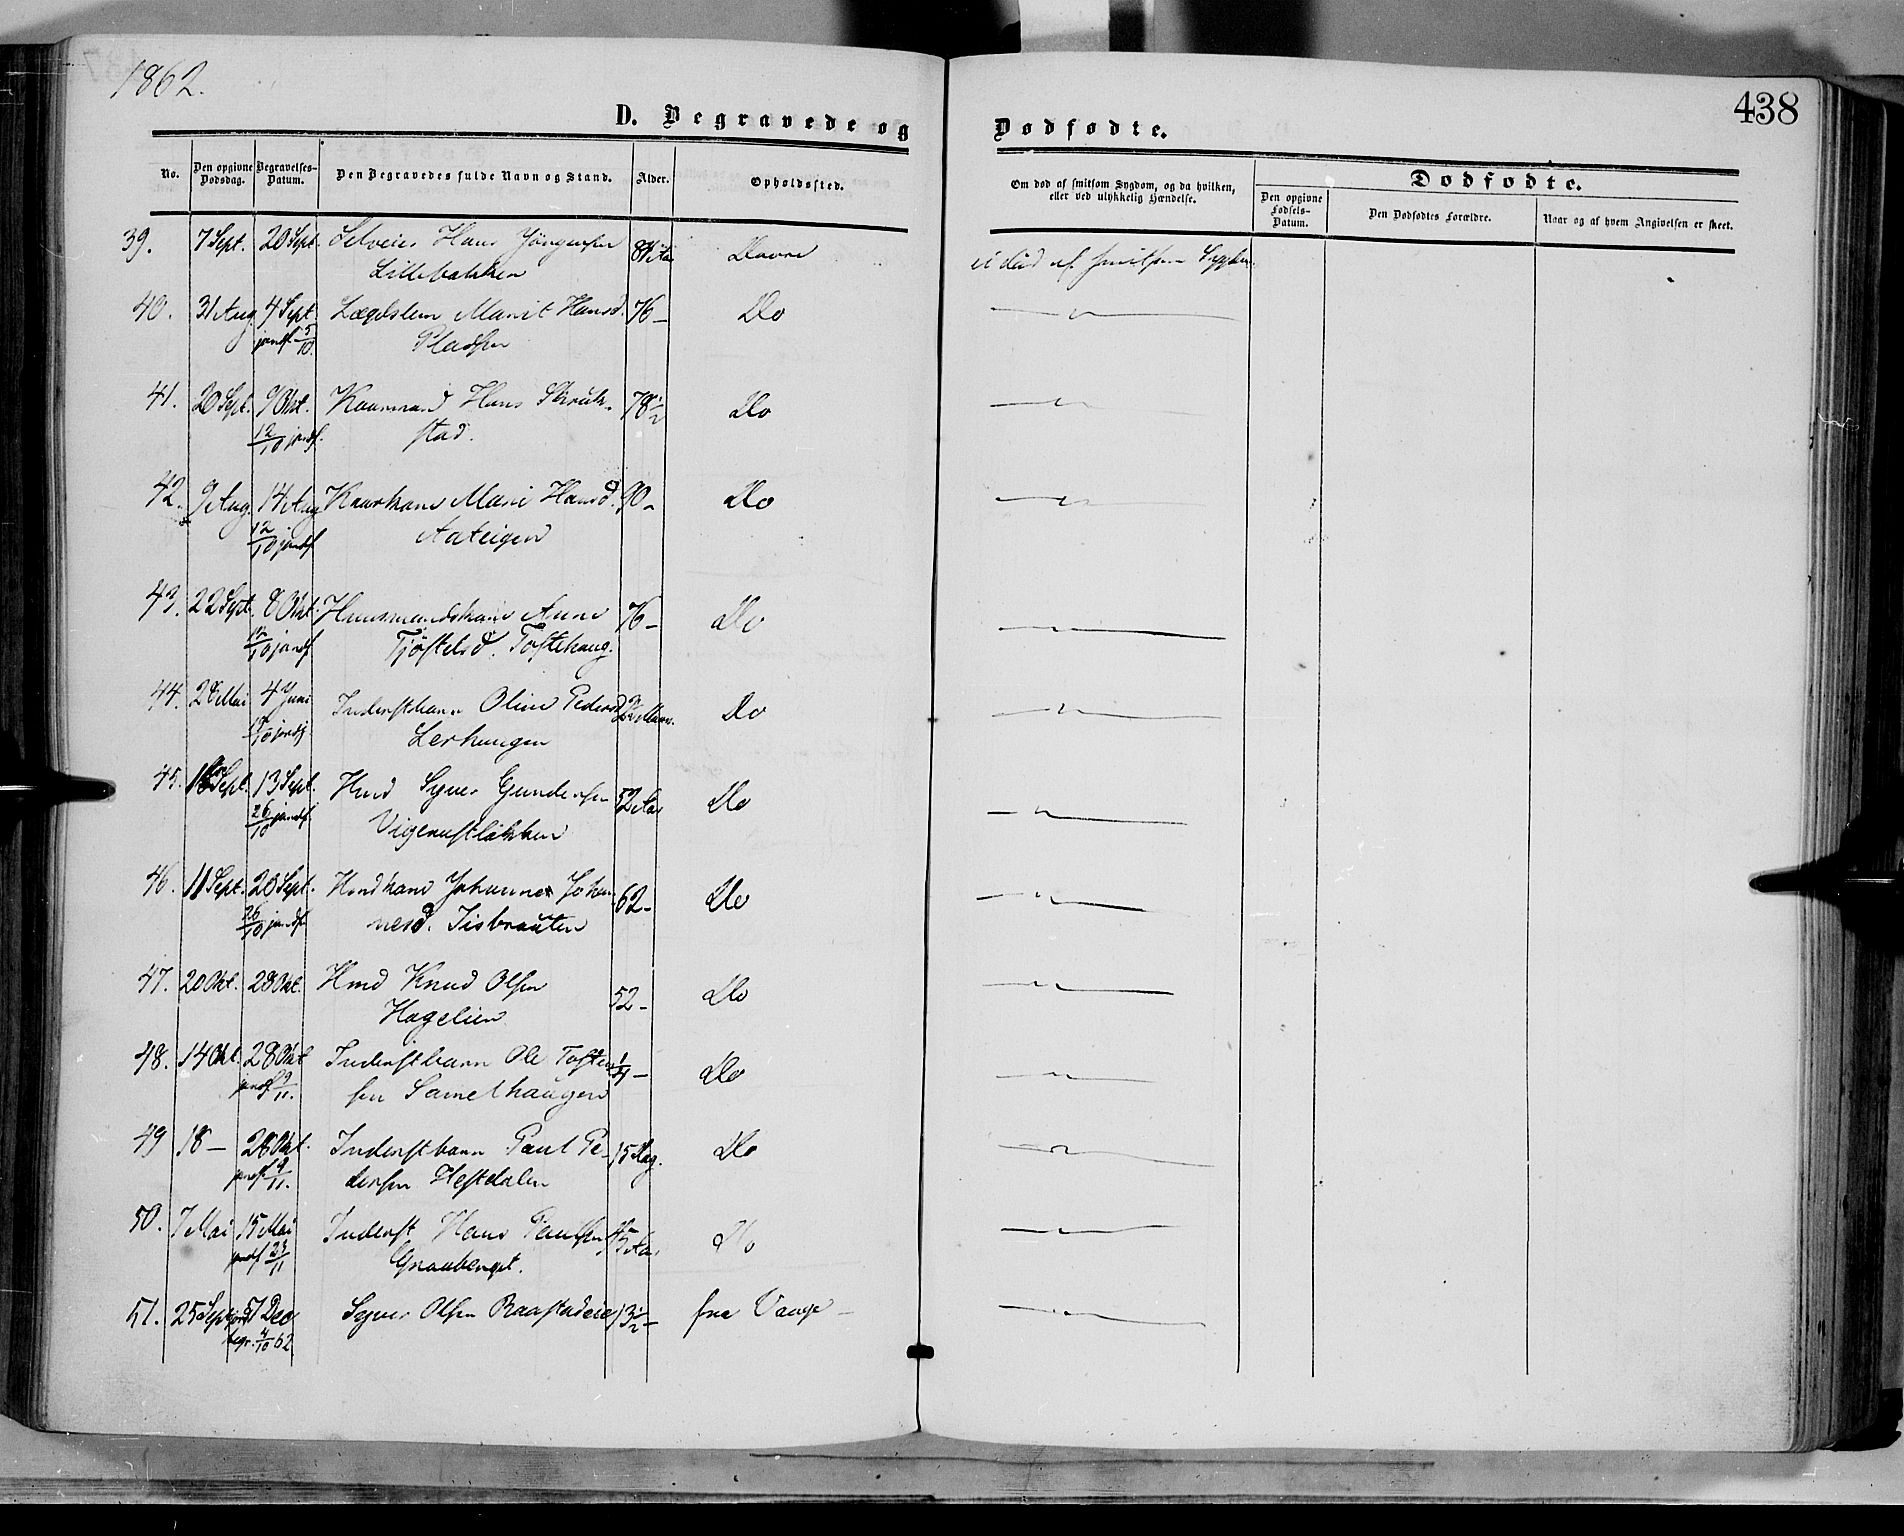 1862.
438
D. Begravede og Dødfødte.
No. Den opgivne Dødsdag. Begravelses-Datum. Den Begravedes fulde Navn og Stand. Alder. Opholdssted. Om død af smitsom Sygdom, og da hvilken, eller ved ulykkelig Hændelse. Dødfødte.
Den opgivne Fødsels-Datum. Den Dødfødtes Forældre. Naar og af hvem Angivelsen er skeet.
39. 7 Sept. 20 Sept. Selveier Hans Jörgensen 84 Aar Dovre ei död af smitsom Sygdom
Lillebakken
40. 31 Aug 4 Sept. Lægdslem Marit Hansd. 76 – Do
jordf. 5/10. Pladsen
41. 20 Sept. 9 Okt. Kaarmand Hans Skrut- 78 1/2 Do
12/10 jordf. stad.
42. 9 Aug. 14 Aug Kaarkone Mari Hansd. 90 – Do
12/10 jordf Aateigen
43. 22 Sept. 8 Okt. Huusmandskone Anne 76 – Do
12/10 jordf Tjöstelsd. Toftehaug.
44. 28 Mai 4 Juni Inderstbarn Oline Pedersd. Do
jordf. Lerhungen
45. Sept. 13 Sept. Hmd Syver Gundersen 52 Aar Do
26/10 jordf. Vigerustlökken
46. 11 Sept. 20 Sept. Hmdkone Johanne Johan- 62 – Do
26/10 jordf nesd. Jisbrauten
47. 20 Okt. 28 Okt. Hmd Knud Olsen 52 – Do
Hagelien
48. 14 Okt. 28 Okt Inderstbarn Ole Tosten- 1/4 – Do
jordf 9/11. sen Samelhaugen
49 18 – 28 Okt. Inderstbarn Paul Pe- 15 Dag. Do
jordf 9/11. dersen Hestdalen
50. 7 Mai 15 Mai Inderst Hans Paulsen Do
jordf 23/11 Graaberget.
51. 25 Sept 7 Dec Syver Olsen Raastadeie 13 1/2 – fra Vaage –
begr. 4/10 62